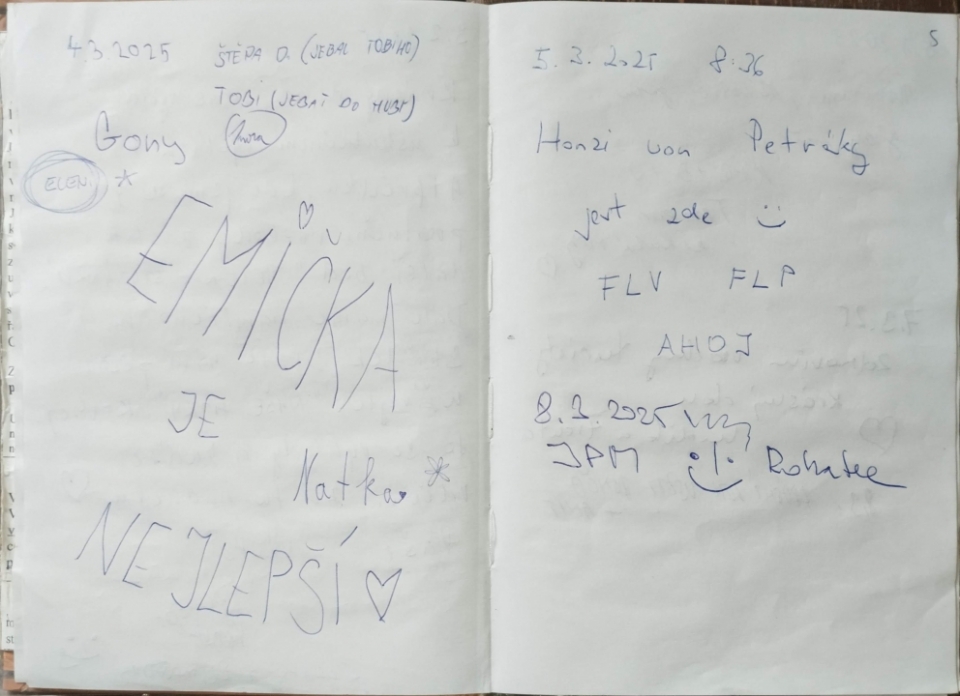 4.3.2025 ŠTĚPA D. (JEBAL TOBIHO)
TOBI (JEBAT DO HUBY)
Gony
ELEN. *
EMIČKA
JE
Natka *
NEJLEPŠÍ ♡
5
5.3.2025 8:36
Honzi von Petráky
jest zde :)
FLV FLP
AHOJ
8.3.2025
JPM :) Rohatec